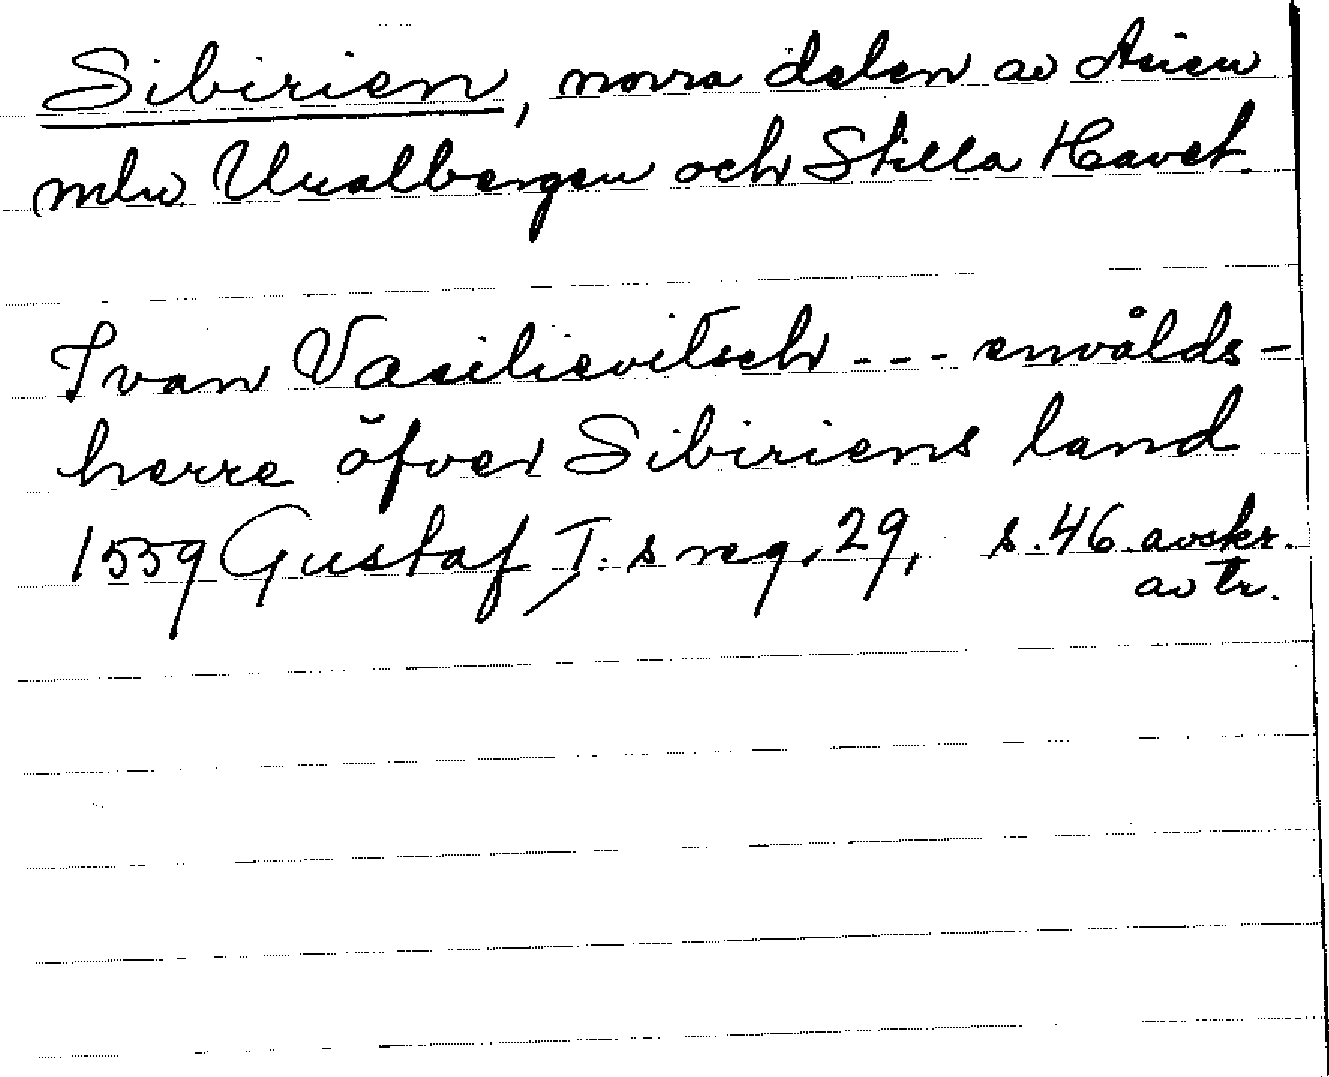 Sibirien, norra delen av Asien
mlw Uralbergen och Stilla Havet.
Ivan Vasilievitsch --- envålds-
herre öfver Sibiriens land
1559 Gustaf I:s reg. 29, s. 46 avskr.
av tr.